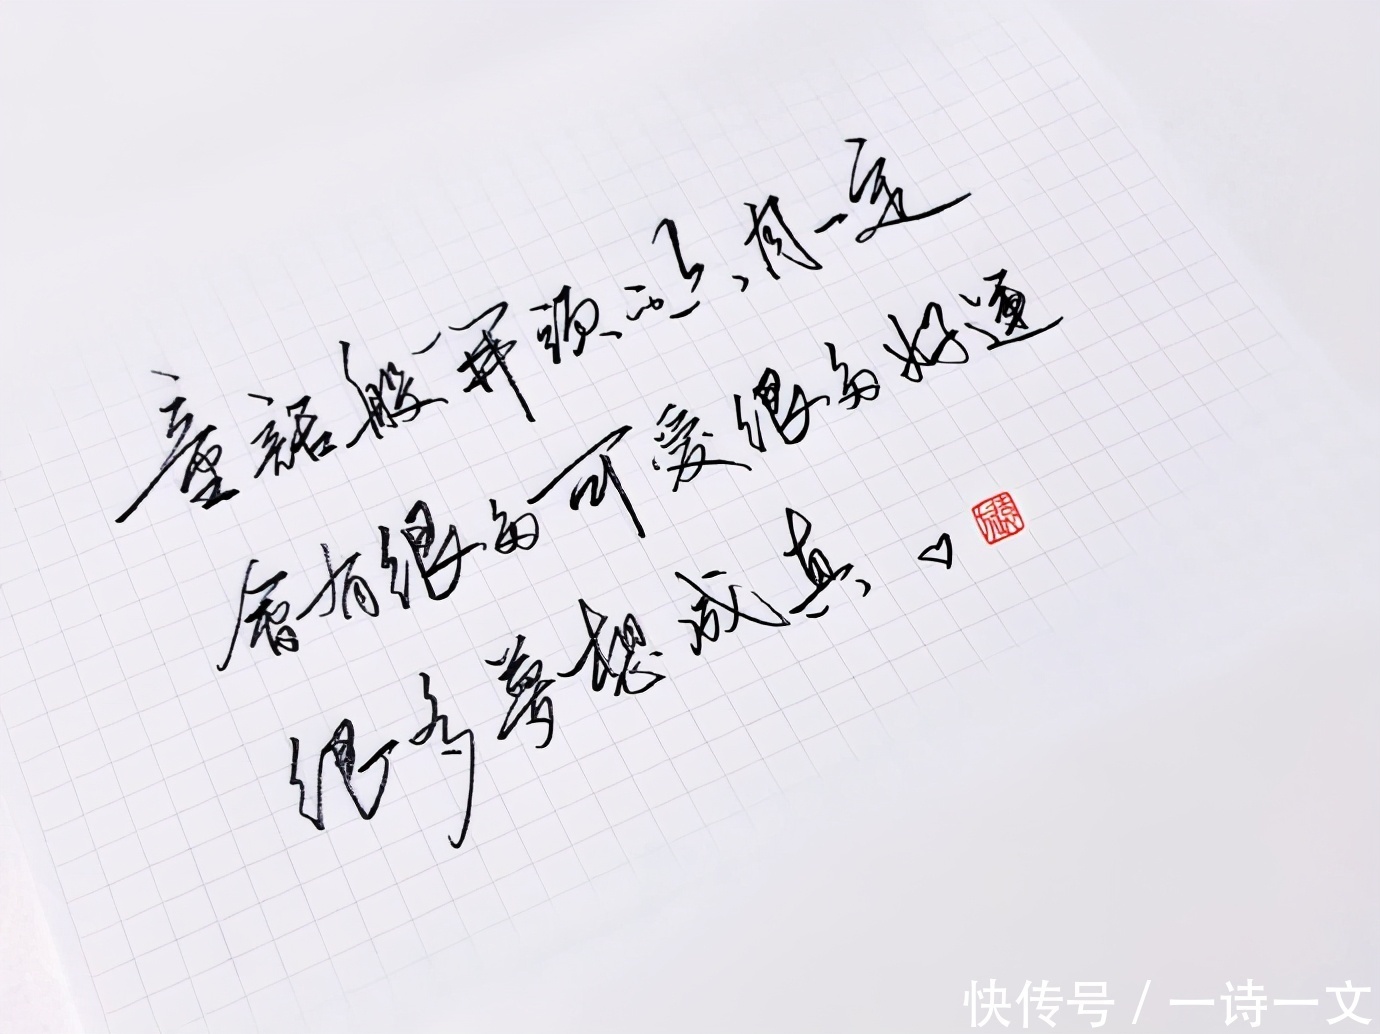 童話般开頭 月一定
會有很多可爱很多好運
很多夢想成真。♡
快传号 / 一诗一文